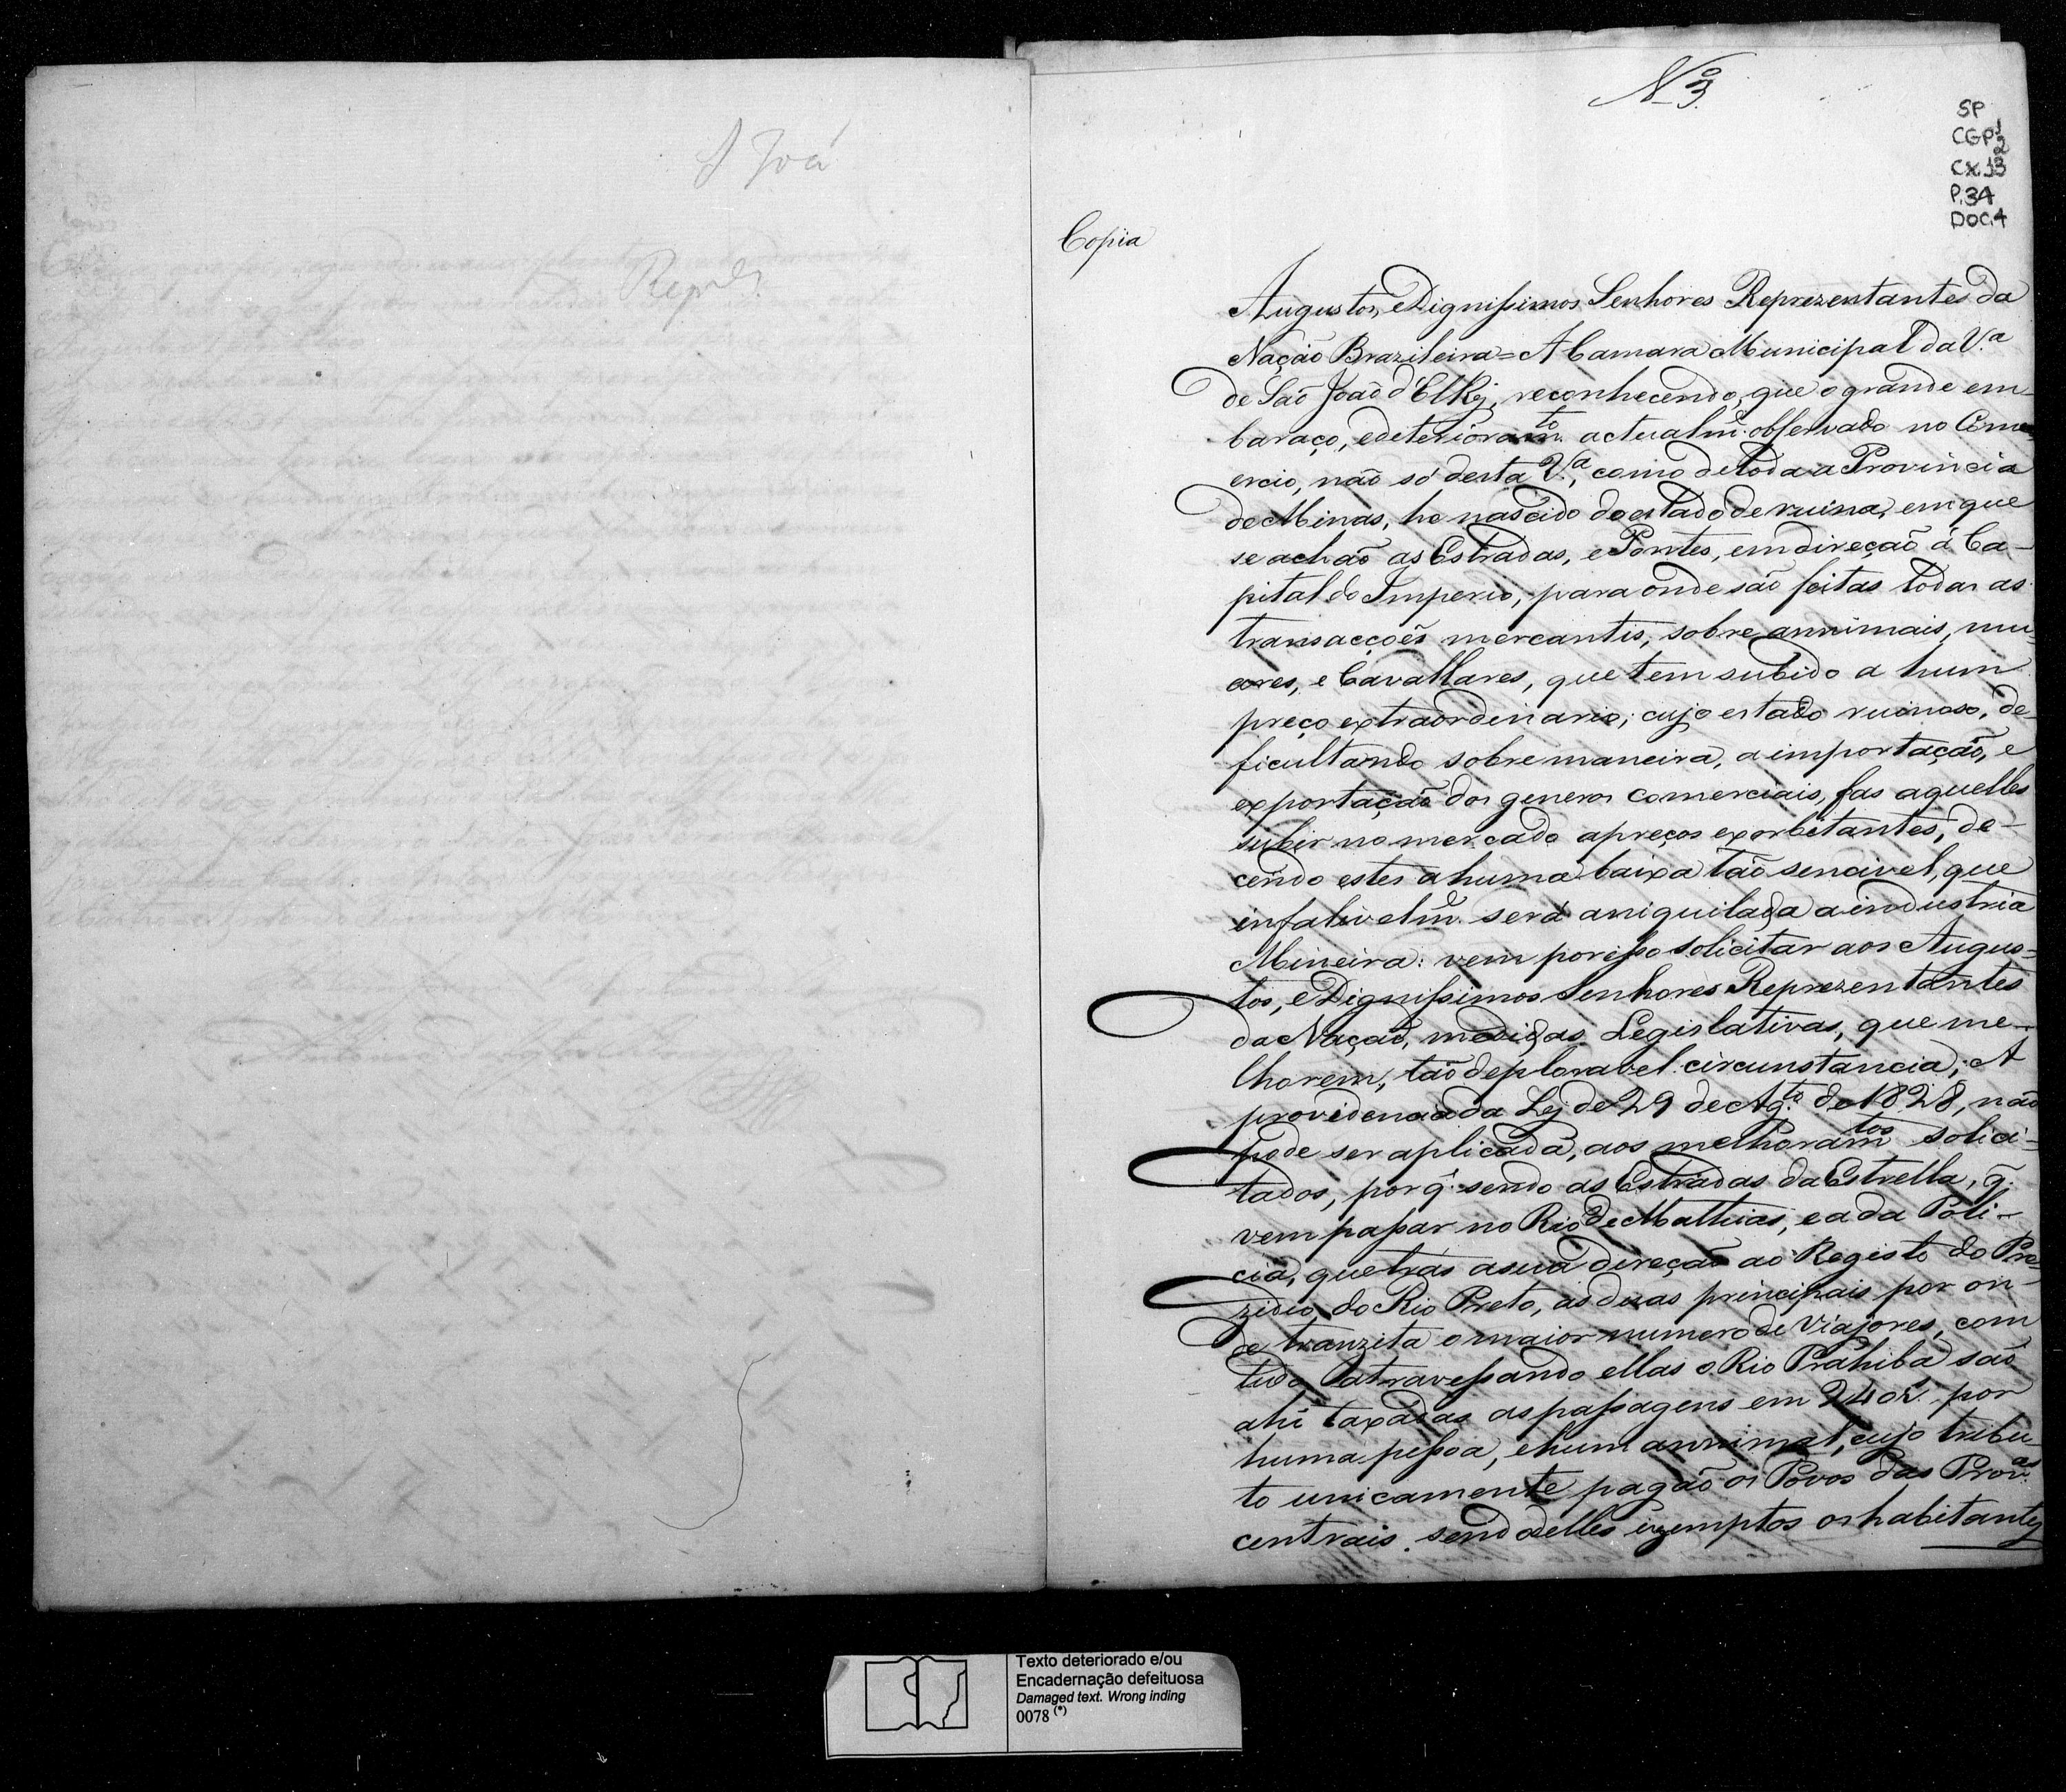 S Joá
N 3.
SP
CGP 1/2
CX.13
P.34
DOC.4
Copia
Augustos, e Dignissimos Senhores Reprezentantes da
Nação Brazileira = A Camara Municipal da V.ª
de São João d'El Rej, reconhecendo, que o grande em-
baraço, e deterioram.to actualm.e observado no Come
ercio, não só desta V.ª, como de toda a Provincia
de Minas, he nascido do estado de ruina, em que
se achão as Estradas, e Pontes, em direção á Ca-
pital do Imperio, para onde são feitas todas as
transacçoẽs mercantis, sobre annimais, mu-
ares, e Cavallares, que tem subido a hum
preço extraordinario; cujo estado ruinoso, de-
ficultando sobremaneira, a importação, e
exportação dos generos comerciais, fas aquelles
subir no mercado a preços exorbitantes, de-
cendo estes a huma baixa tão sencivel, que
infalivelm.e será aniquilada a industria
Mineira: vem por isso solicitar aos Augus-
tos, e Dignissimos Senhores Reprezentantes
da Nação, medidas Legislativas, que me-
lhorem, tão deploravel circunstancia; A
providencia da Lej de 29 de Ag.to de 1828, não
pode ser aplicada, aos melhoram.tos solici-
tados, por q̃ sendo as Estradas da Estrella, q̃
vem passar no Rio de Mathias, e a da Poli-
cia, que trás a sua direção ao Registo do Pre-
zidio do Rio Preto, as duas principais por on-
de tranzita o maior numero de Viajores, com
tudo atravessando ellas o Rio Prahiba são
ahi taxadas as passagens em 240 r.s por
huma pessoa, e hum annimal, cujo tribu-
to unicamente pagão os Povos das Prov.as
centrais, sendo delles izemptos os habitantes
Texto deteriorado e/ou
Encadernação defeituosa
Damaged text. Wrong inding
0078 (*)